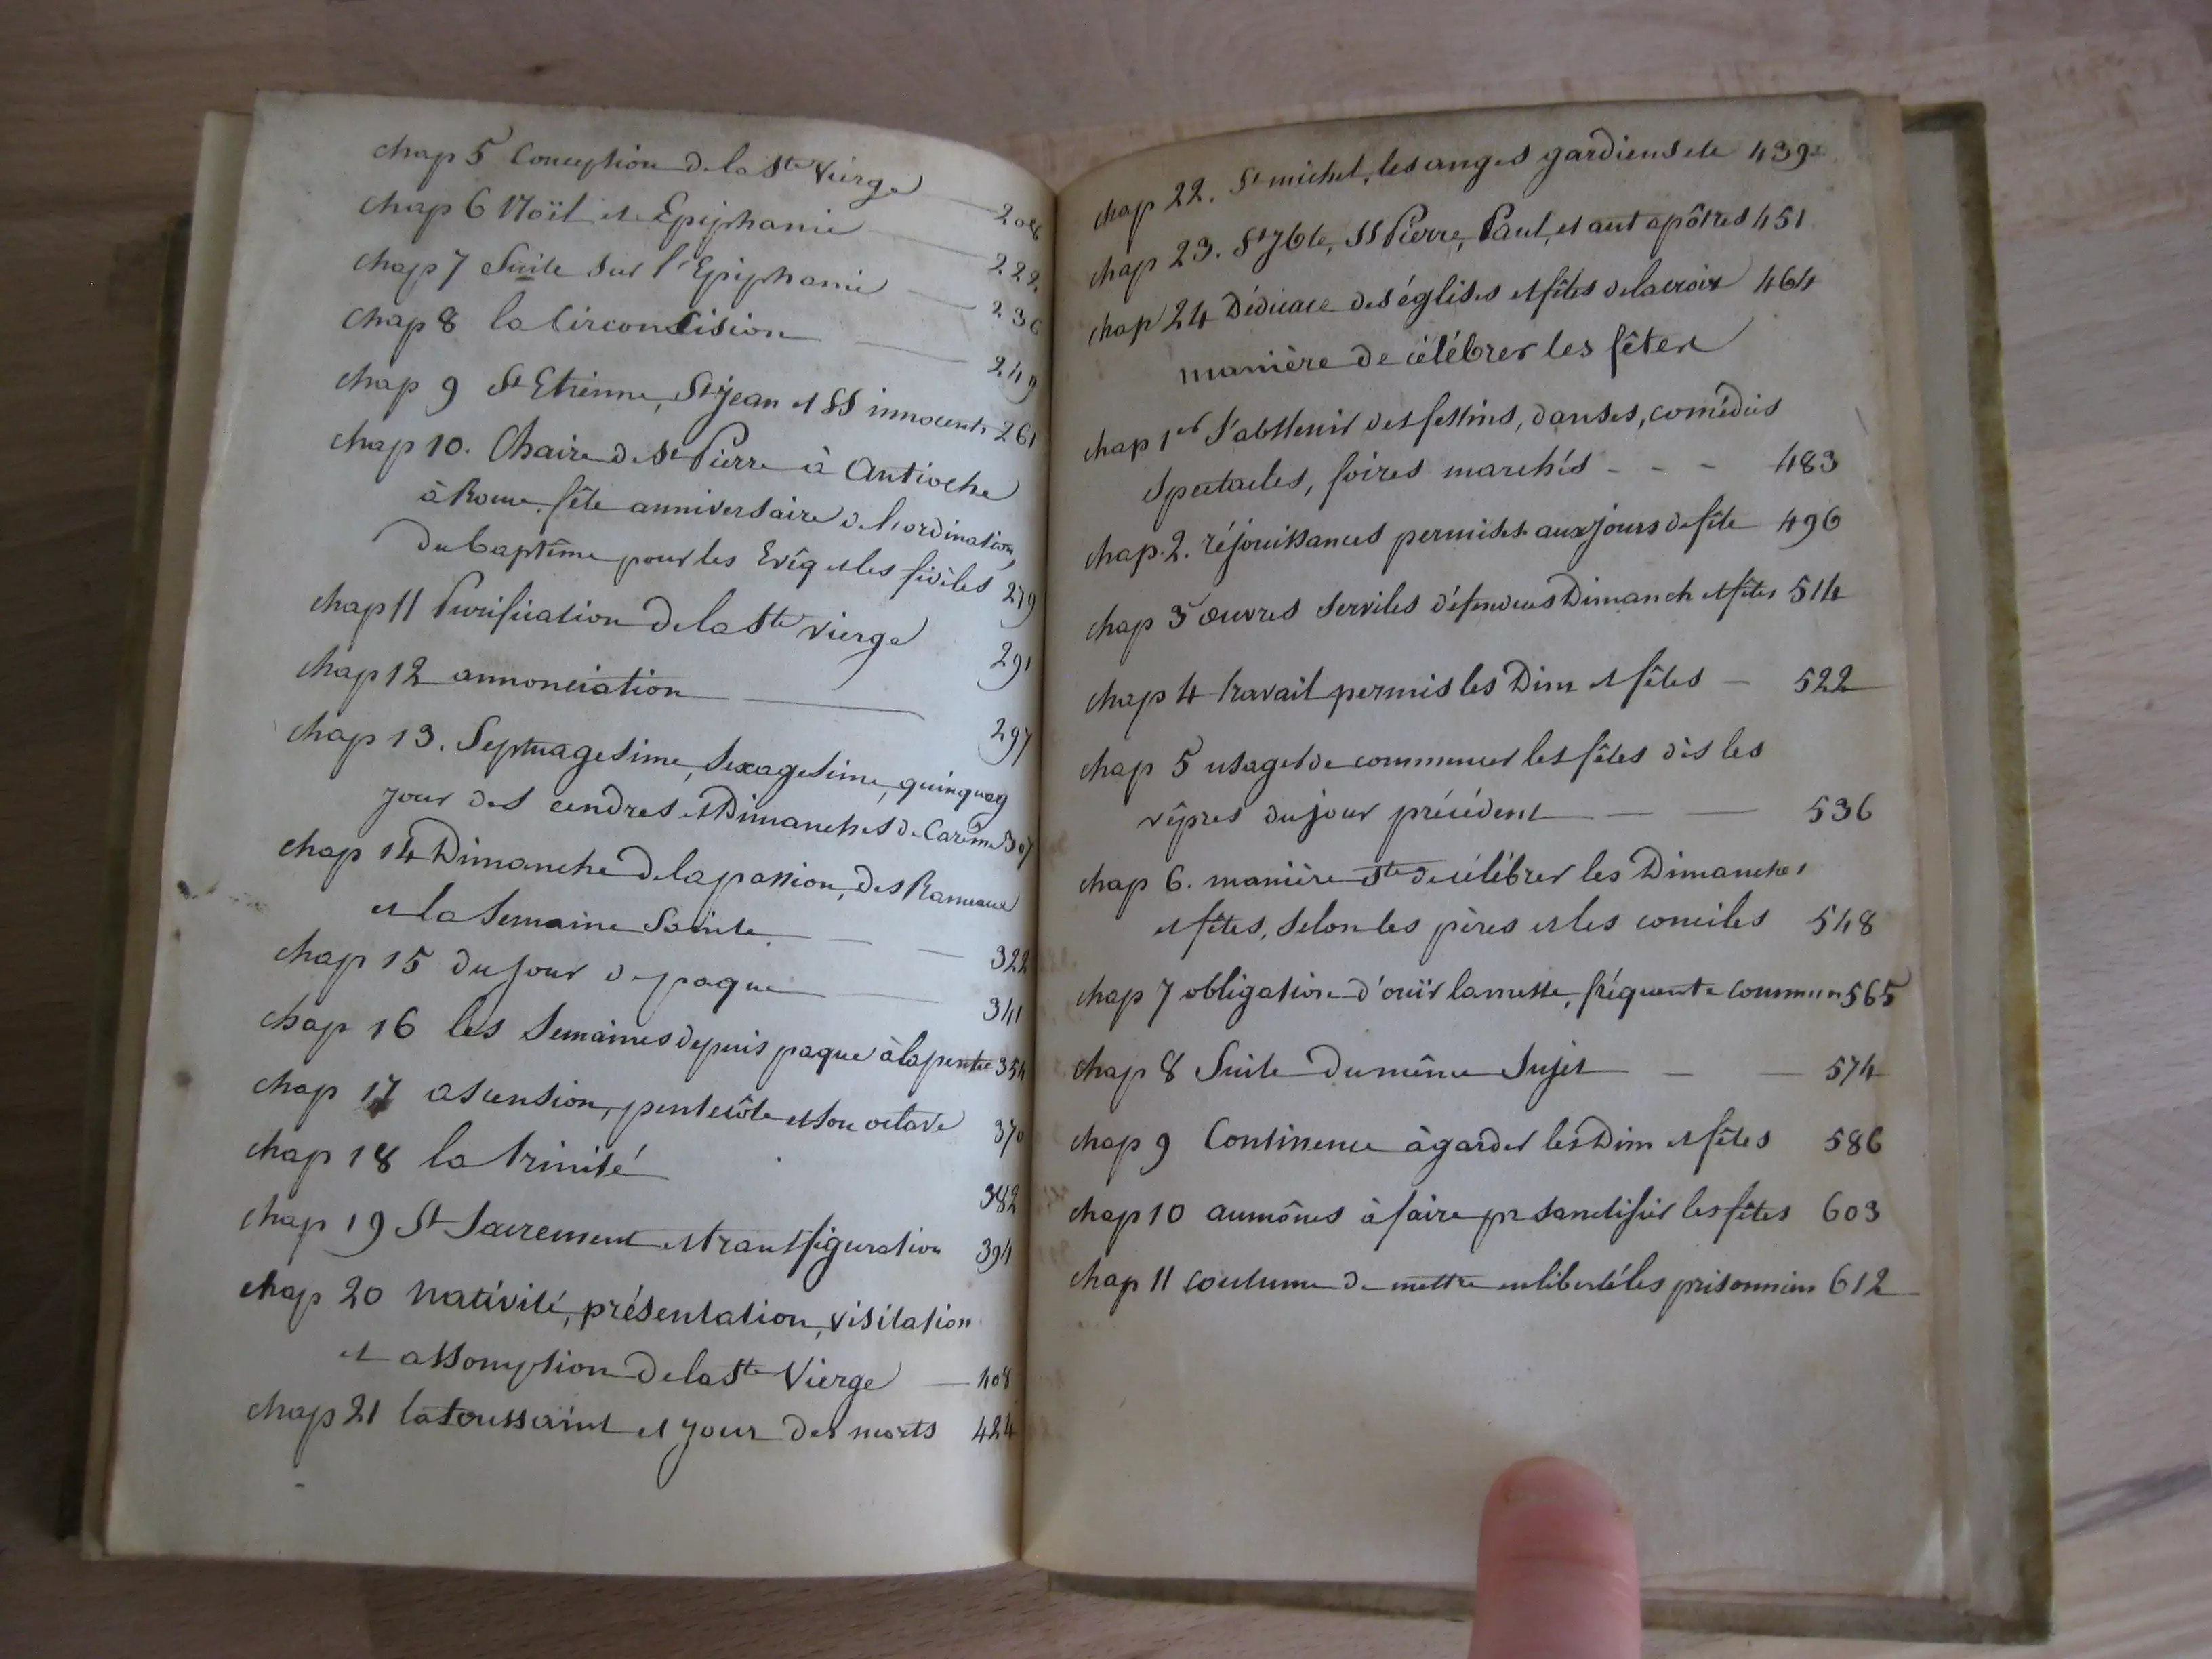 chap 5 Conception de la Ste Vierge — 208
chap 6 Noïl et Epiphanie — 222.
chap 7 Suite sur l'Epiphanie — 236
chap 8 la Circoncision — 249
chap 9 St Etienne, St jean et SS innocents 261
chap 10. Chaire de St Pierre à Antioche
à Rome, fête anniversaire de l'ordination,
du baptême pour les Evêq et les fidèles 279
chap 11 Purification de la Ste vierge 291
chap 12 annonciation — 297
chap 13. Septuagesime, sexagesime, quinquag
jour des cendres et Dimanches de Carême 307
chap 14 Dimanche de la passion, des Rameaux
et la Semaine Sainte — — 322
chap 15 du jour de paque — 341
chap 16 les Semaines depuis paque à la pentec 354
chap 17 ascension, pentecôte et son octave 370
chap 18 la trinité 382
chap 19 St Sacrement et transfiguration 394
chap 20 nativité, présentation, visitation
et assomption de la Ste Vierge — 408
chap 21 la toussaint et jour des morts 424
chap 22. St michel, les anges gardiens etc 439
chap 23. St Jbte, SS Pierre, Paul, et aut apôtres 451
chap 24 Dédicace des églises et fêtes de la croix 464
manière de célébrer les fêtes
chap 1er S'abstenir des festins, danses, comédies
spectacles, foires marchés - - - 483
chap. 2. réjouissances permises aux jours de fête 496
chap 3 œuvres serviles défendues Dimanch et fêtes 514
chap 4 travail permis les Dim et fêtes — 522
chap 5 usage de commencer les fêtes dès les
vêpres du jour précédent — — 536
chap 6. manière Ste de célébrer les Dimanches
et fêtes, selon les pères et les conciles 548
chap 7 obligation d'ouïr la messe, fréquente commun 565
chap 8 Suite du même Sujet — — 574
chap 9 Continence à garder les Dim et fêtes 586
chap 10 aumônes à faire pr sanctifier les fêtes 603
chap 11 coutume de mettre en liberté les prisonniers 612